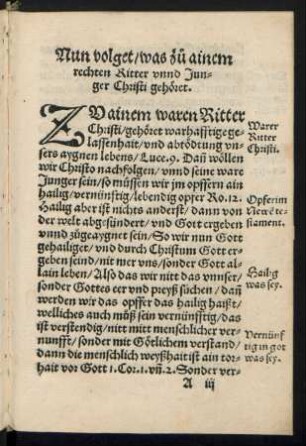 Nun volget/was zů ainem
rechten Ritter vnnd Jun-
ger Christi gehöret.
ZVainem waren Ritter
Christi/gehöret warhafftige ge-
lassenhait/vnd abtödtung vn-
sers aygnen lebens/Luce.9. Dañ wöllen
wir Christo nachfolgen/vnnd seine ware
Junger sein/so müssen wir jm opffern ain
hailig/vernünftig/lebendig opfer Ro.12.
Hailig aber ist nichts anderst/dann von
der welt abgesündert/vnd Gott ergeben
vnnd zůgeaygnet sein/So wir nun Gott
gehailiget/vnd durch Christum Gott er-
geben seind/nit mer vns/sonder Gott al-
lain leben/Also das wir nitt das vnnser/
sonder Gottes eer vnd preyß sůchen/dañ
werden wir das opffer das hailig haißt/
welliches auch můß sein vernünfftig/das
ist verstendig/nitt mitt menschlicher ver-
nunfft/sonder mit Götlichem verstand/
dann die menschlich weyßhait ist ain tor-
hait vor Gott 1.Cor.1.vñ.2. Sonder ver-
A iij
Warer
Ritter
Christi.
Opfer im
Newē te-
stament.
Hailig
was sey.
Vernünf-
tig in got
was sey.